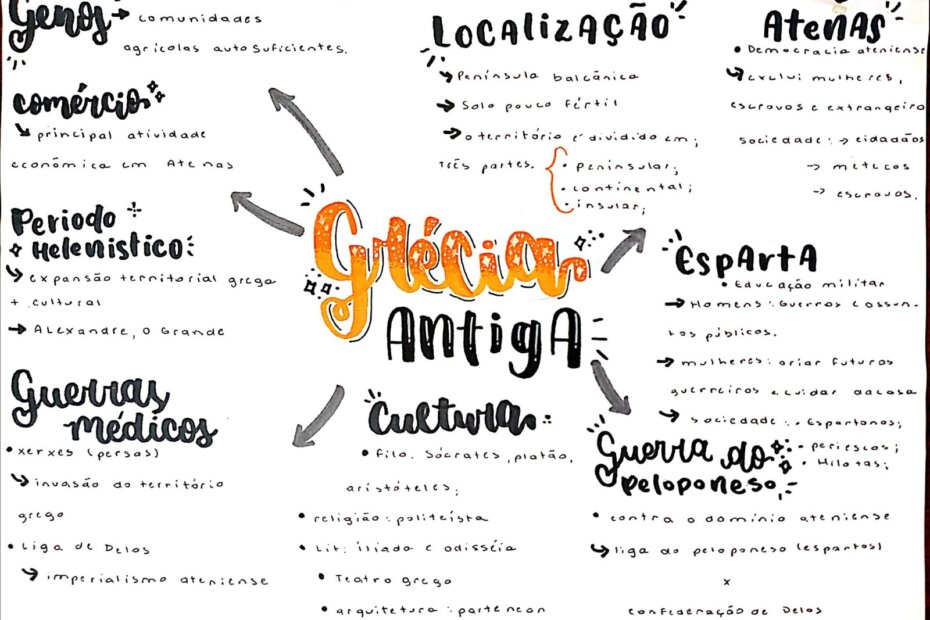 Genos → comunidades
agrícolas autosuficientes.
comércio
principal atividade
econômica em Atenas
Período
Helenístico:
expansão territorial grega
+ cultural
→ Alexandre, o Grande
Guerras
médicos
• xerxes (persas)
invasão do território
grego
• Liga de Delos
imperialismo ateniense
Localização
Península balcânica
→ Solo pouco fértil
→ o território é dividido em;
três partes.
• peninsular;
• continental;
• insular;
Grécia
Antiga
Cultura
• filo. Sócrates, platão,
aristóteles;
• religião: politeísta
• Lit: ilíada e odisséia
• Teatro grego
• arquitetura: partenon
Atenas
• Democracia ateniense
exclui mulheres,
escravos e extrangeiro
sociedade: → cidadãos
→ metecos
→ escravos.
Esparta
• Educação militar
→ Homens: Guerras e assun-
tos públicos.
→ mulheres: criar futuros
guerreiros e cuidar da casa
→ sociedade: • Espartanos;
• periecos;
• Hilotas;
Guerra do
peloponeso
• contra o domínio ateniense
liga do peloponeso (espartas)
x
confederação de Delos